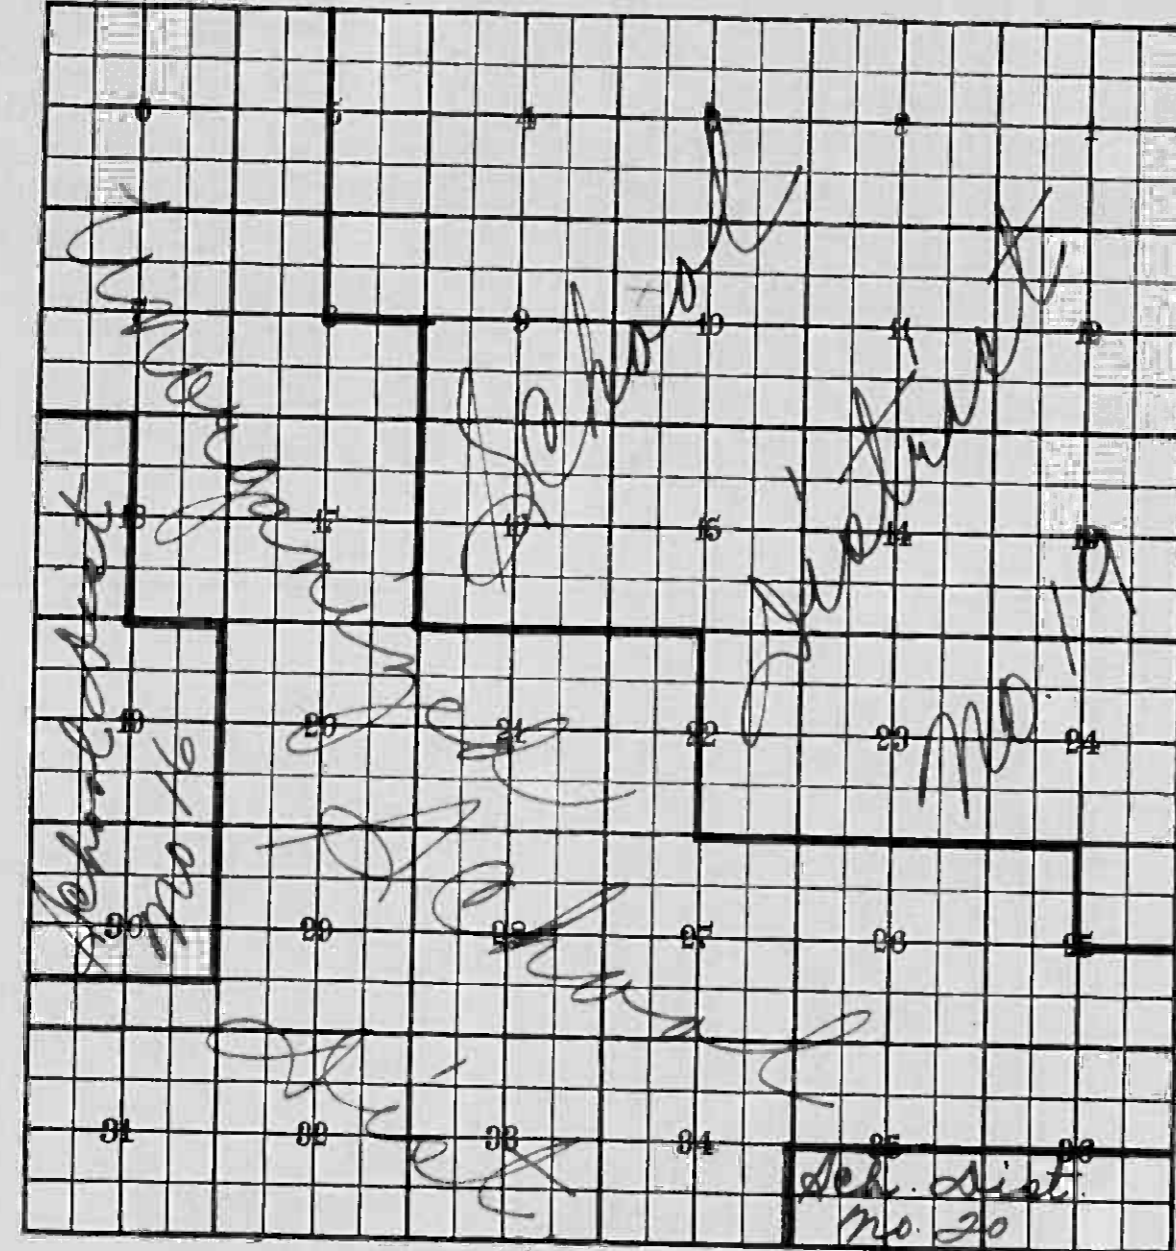 6 5 4 3 2 1
7 8 9 10 11 12
18 17 16 15 14 13
19 20 21 22 23 24
30 29 28 27 26 25
31 32 33 34 35 36
School
District
No. 19
Unorganized
School
Dist
School Dist
No
Sch. Dist.
No. 20